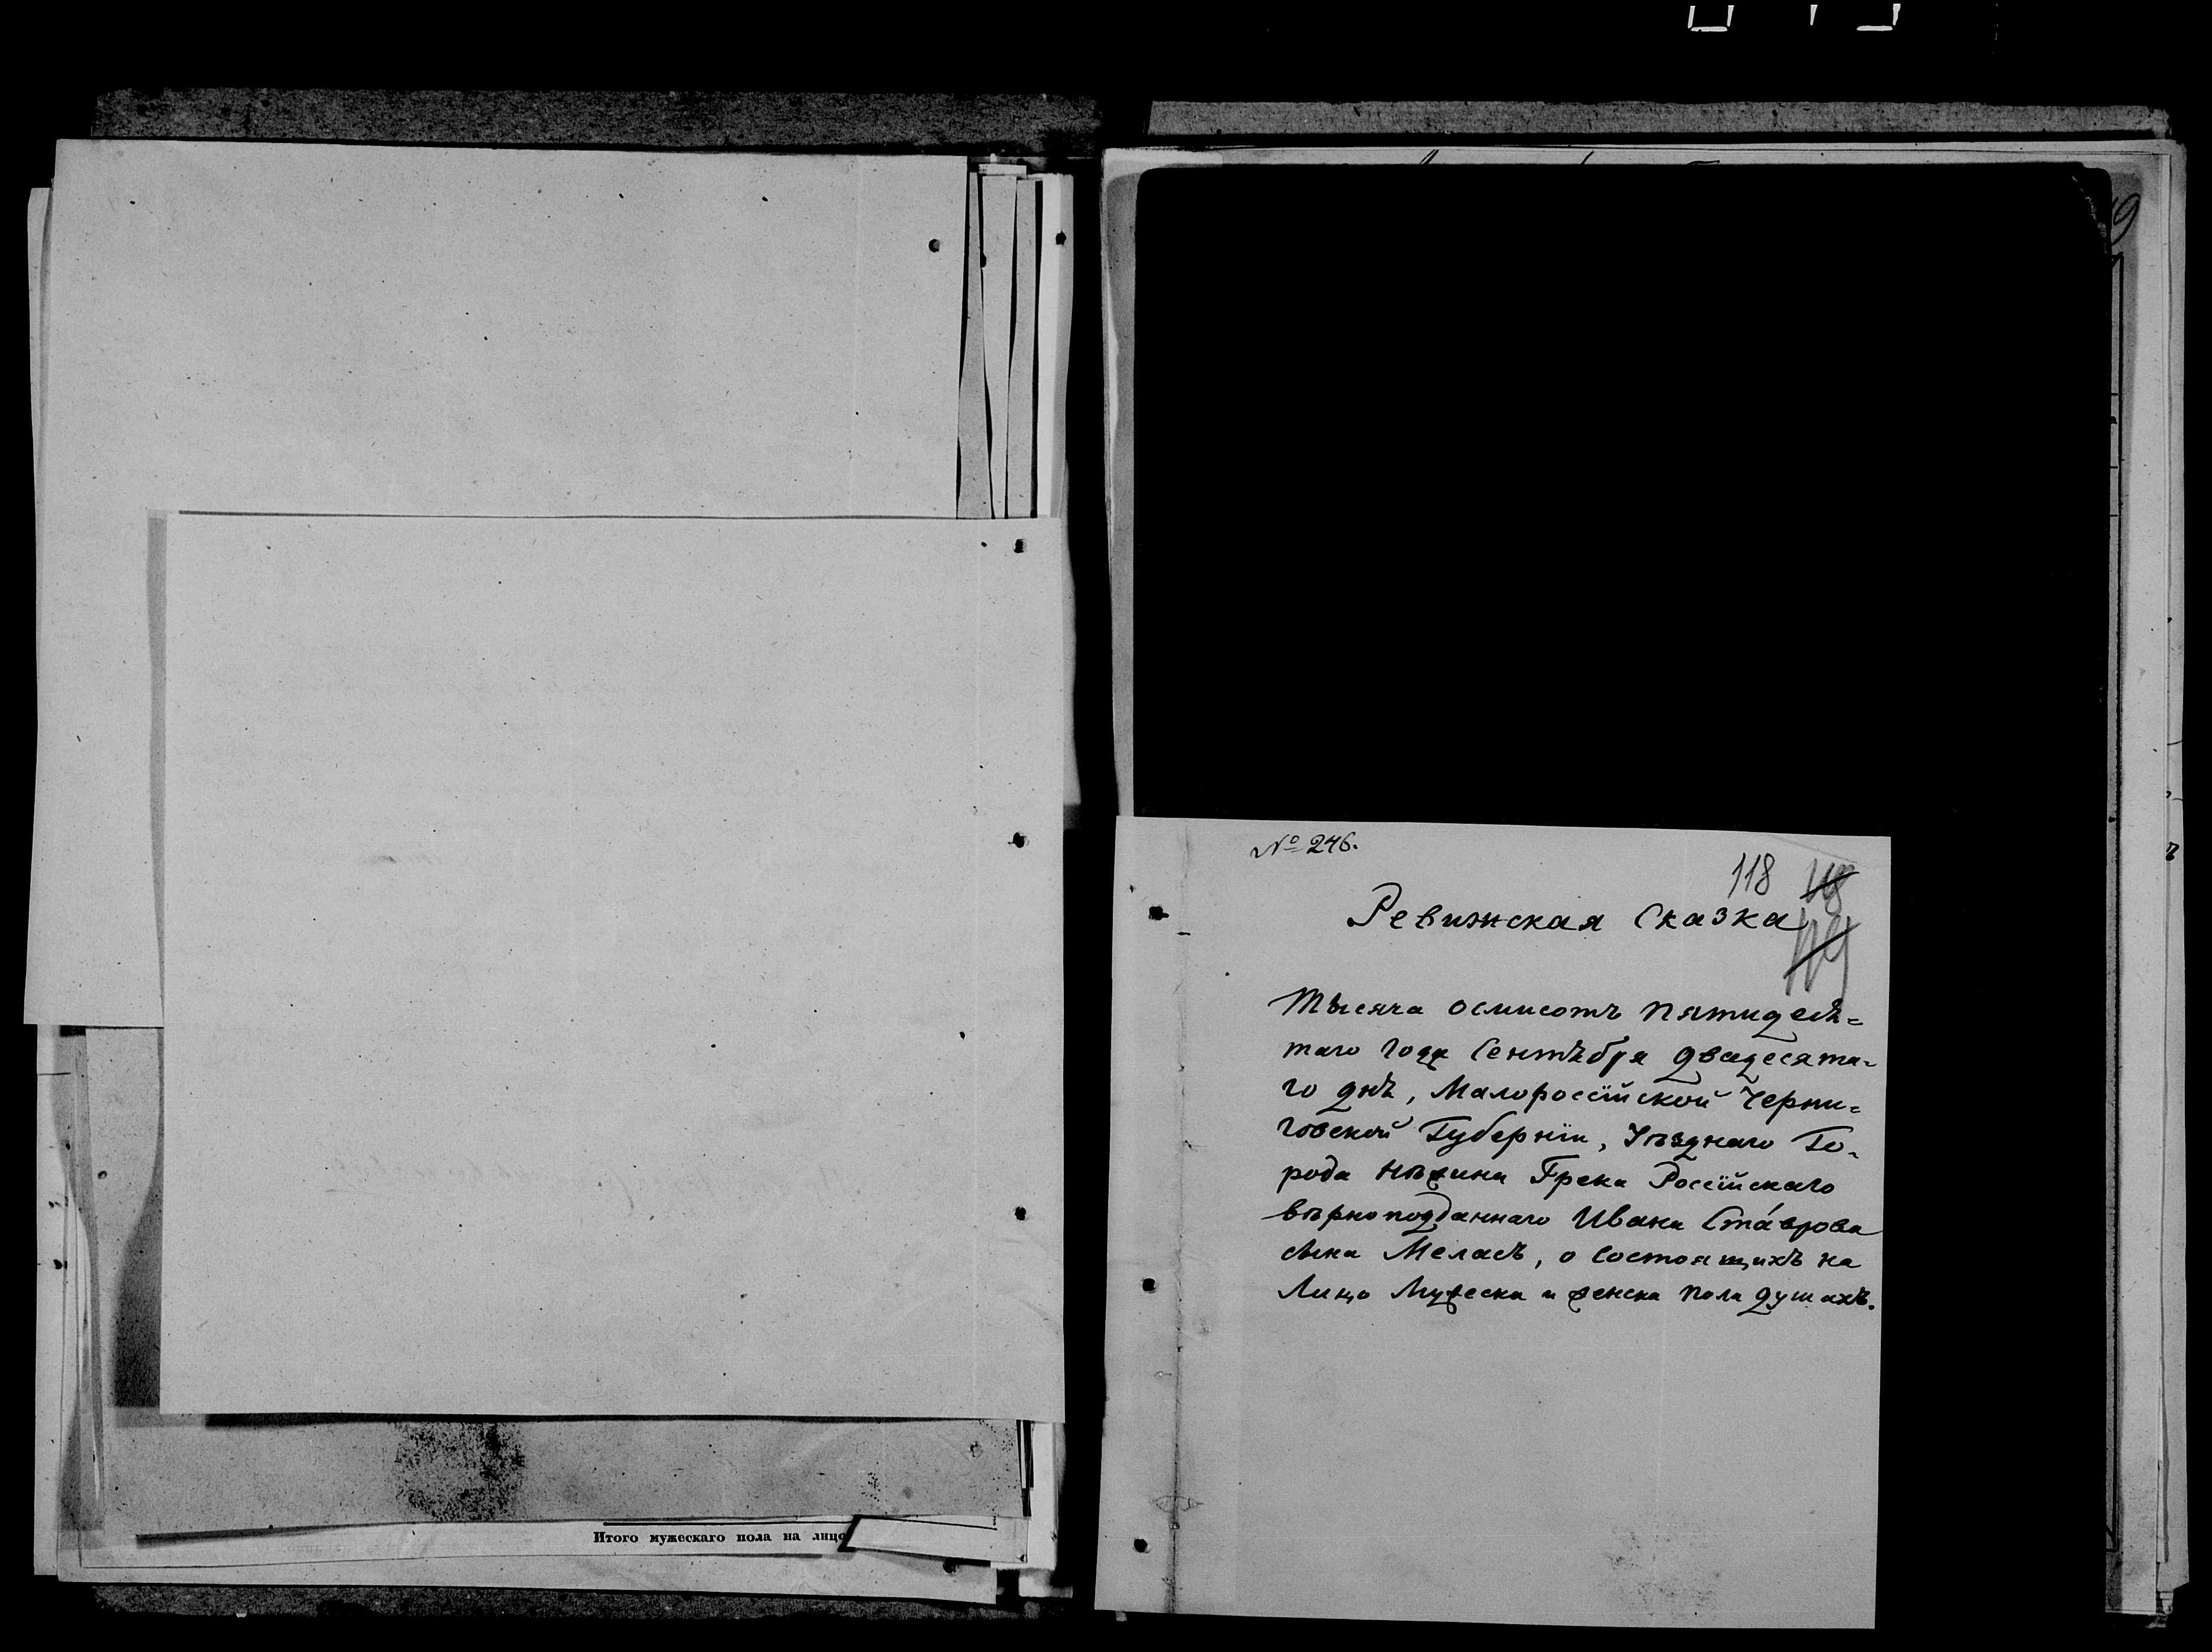 Итого мужескаго пола на лицо
№ 246.
118 118
Ревижская Сказка
119
Тысяча осмисотъ пятидесѣ=
таго года Сентѣбря двадесята=
го днѣ, Малоросеїйской Черни=
говской Губернїи, Уѣзднаго Го=
рода Нѣжина Грека Росеїйскаго
вѣрноподданнаго Ивана Ста́врова
сына Меласъ, о состоящихъ на
Лицо Мужеска и женска пола душахъ.